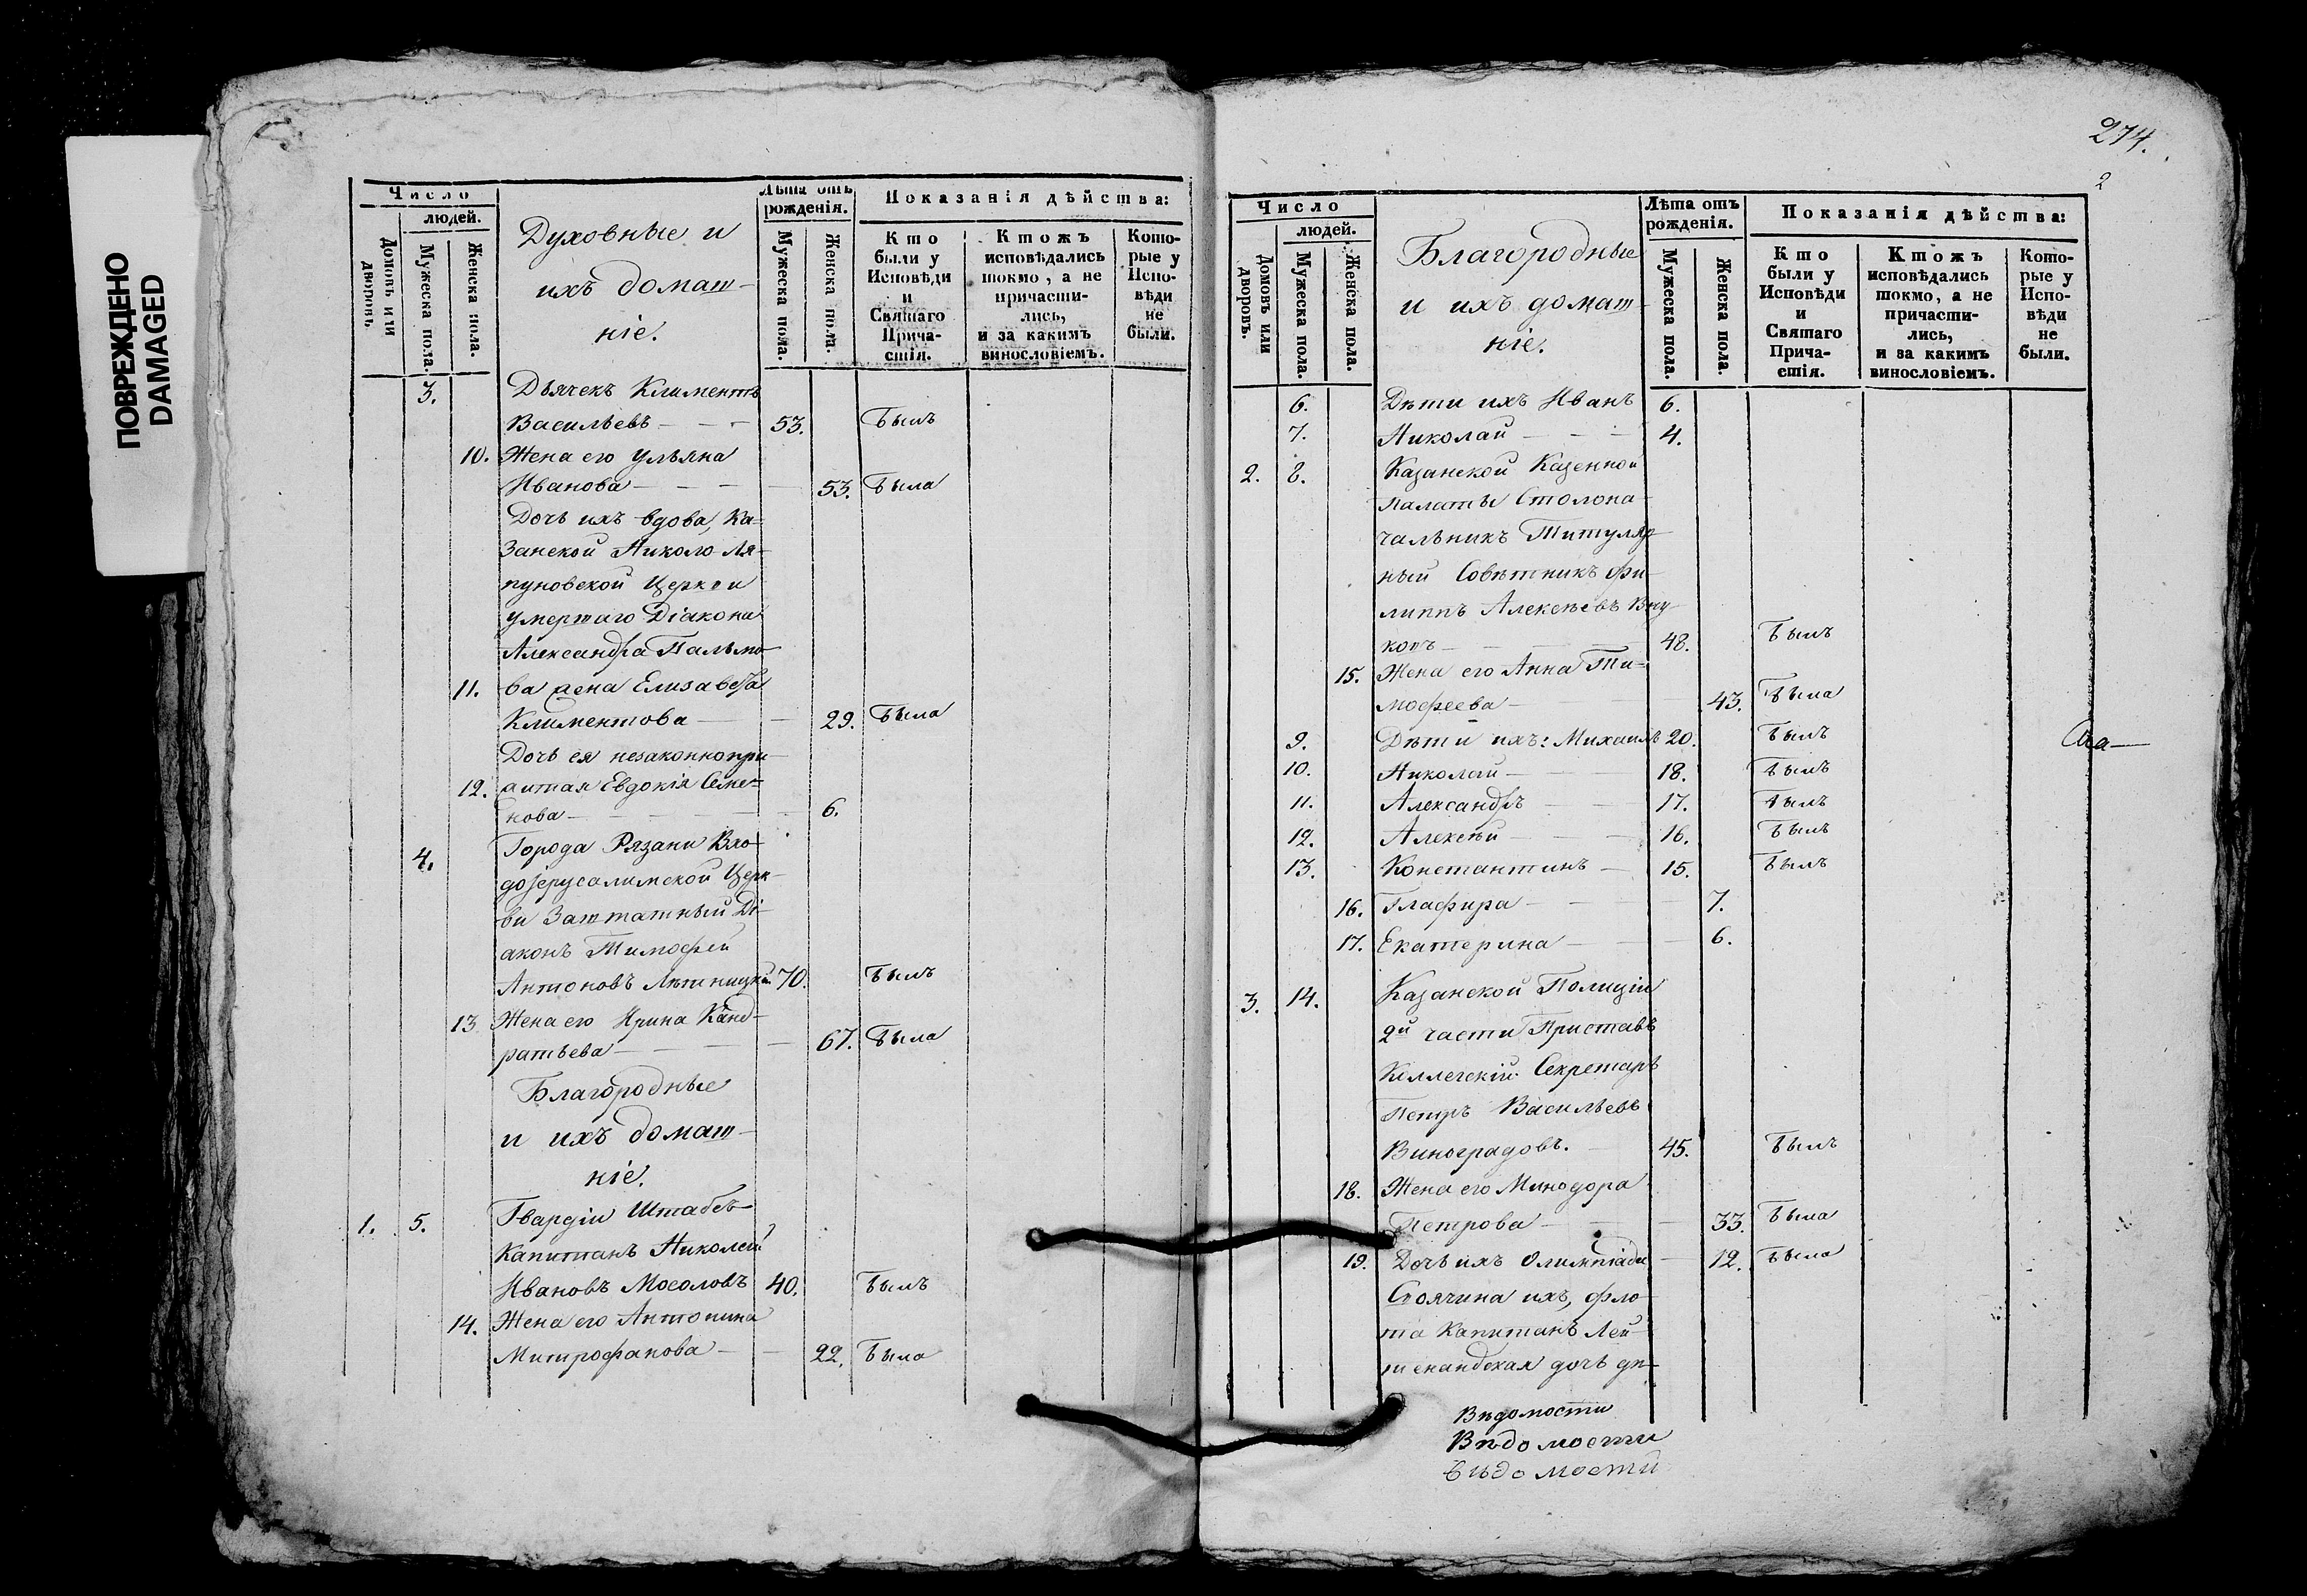 ПОВРЕЖДЕНО
DAMAGED
Число
людей.
Домовъ или дворовъ.
Мужеска пола.
Женска пола.
Духовные и
ихъ домаш-
ніе.
Лѣта отъ
рожденія.
Мужеска пола.
Женска пола.
Показанія дѣйства:
Кто
были у
Исповѣди
и
Святаго
Прича-
стія.
Ктожъ
исповѣдались
токмо, а не
причасти-
лись,
и за какимъ
винословіемъ.
Кото-
рые у
Испо-
вѣди
не
были.
3. Дьячекъ Климентъ
Васильевъ - - - 53. Былъ
10. Жена его Ульяна
Иванова - - - 53. Была
Дочь ихъ вдова, Ка=
занской Николо Ля-
пуновской Церкви
умершаго Діакона
Александра Пальмо-
11. ва жена Елизавета
Климентова - - 29. Была
Дочь ея незаконнопри-
12. житая Евдокія Семе=
нова - - - 6.
4. Города Рязани Вхо-
доіерусалимской Церк-
ви Заштатный Ді-
аконъ Тимофей
Антоновъ Лѣтницкій 70. Былъ
13 Жена его Ирина Конд-
ратьева - - - 67. Была
Благородные
и ихъ домаш-
ніе.
1. 5. Гвардіи Штабсъ-
Капитанъ Николай
Ивановъ Мосоловъ 40. Былъ
14. Жена его Антонина
Митрофанова - - 22. Была
274.
2
Число
людей.
Домовъ или дворовъ.
Мужеска пола.
Женска пола.
Благородные
и ихъ домаш-
ніе.
Лѣта отъ
рожденія.
Мужеска пола.
Женска пола.
Показанія дѣйства:
Кто
были у
Исповѣди
и
Святаго
Прича-
стія.
Ктожъ
исповѣдались
токмо, а не
причасти-
лись,
и за какимъ
винословіемъ.
Кото-
рые у
Испо-
вѣди
не
были.
6. Дѣти ихъ Иванъ 6.
7. Николай - - - 4.
2. 8. Казанской Казенной
Палаты Столона-
чальникъ Титуляр-
ный Совѣтникъ Фи-
липпъ Алексѣевъ Вну-
ковъ - - - 48. Былъ
15. Жена его Анна Ти-
мофеева - - 43. Была
9. Дѣти ихъ: Михаилъ 20. Былъ
10. Николай - - 18. Былъ
11. Александръ - - 17. Былъ
12. Алексѣй - - - 16. Былъ
13. Константинъ - 15. Былъ
16. Глафира - - - 7.
17. Екатерина - - 6.
3. 14. Казанской Полиціи
2й части Приставъ
Коллегскій Секретарь
Петръ Васильевъ
Виноградовъ. - 45. Былъ
18. Жена его Минодора
Петрова - - 33. Была
19. Дочь ихъ Олимпіада - 12. Была
ихъ, фло-
та Капитанъ Лей-
тенандская дочь дѣ-
Вѣдомости
Вѣдомости
вѣдомости